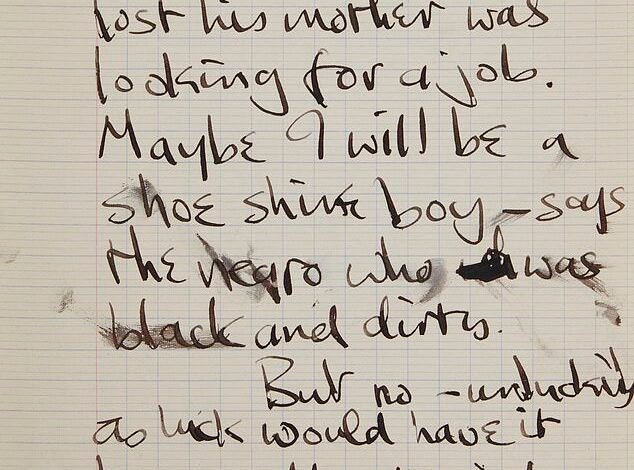 lost his mother was
looking for a job.
Maybe I will be a
shoe shine boy - says
the negro who was
black and dirty.
But no - unluckily
as luck would have it